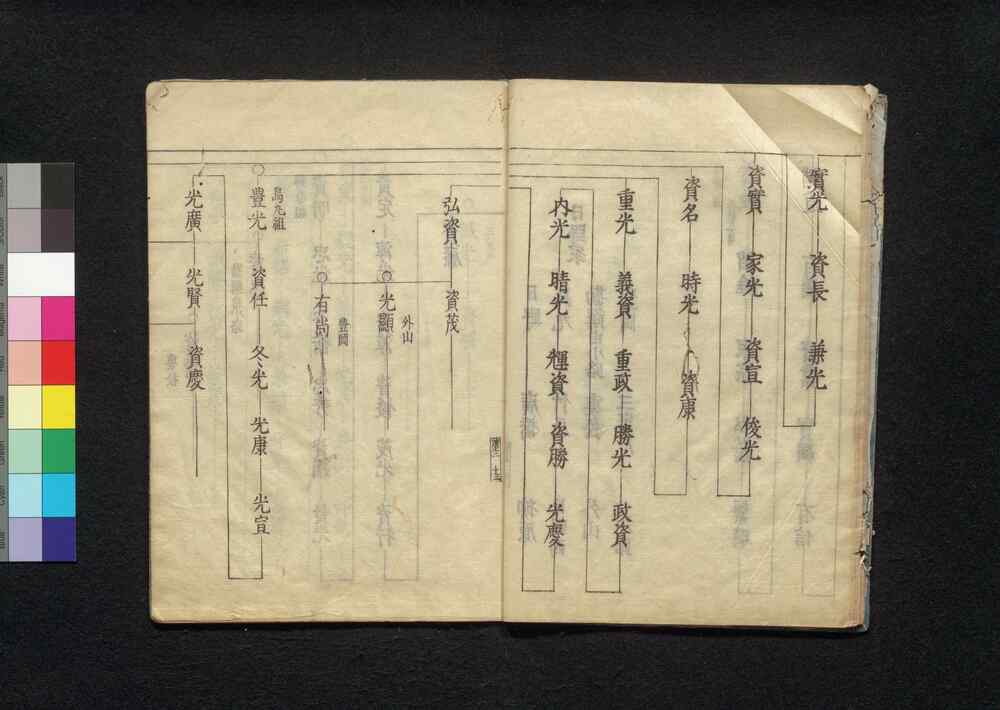 實光 資長 兼光
資實 家光 資宣 俊光
資名 時光 資康
重光 義資 重政 勝光 政資
内光 晴光 輝資 資勝 光慶
弘資 資茂
外山
光顯
豊岡
有尚
烏丸祖
豊光 資任 冬光 光康 光宣
光廣 光賢 資慶